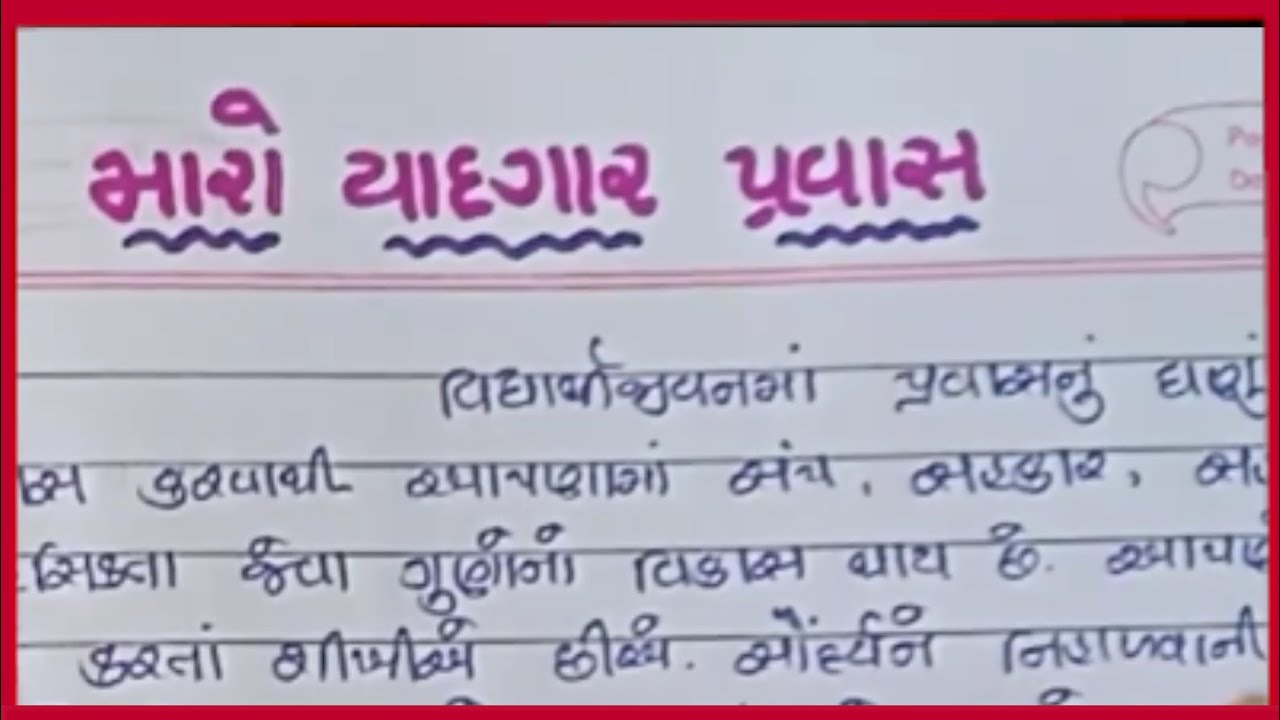 મારો યાદગાર પ્રવાસ
વિદ્યાર્થીજીવનમાં પ્રવાસનું ઘણું
કરવાથી આપણામાં સંપ, સહકાર,
જેવા ગુણોનો વિકાસ થાય છે. આપણે
કરતાં શીખીએ છીએ. સૌંદર્યને નિહાળવાની